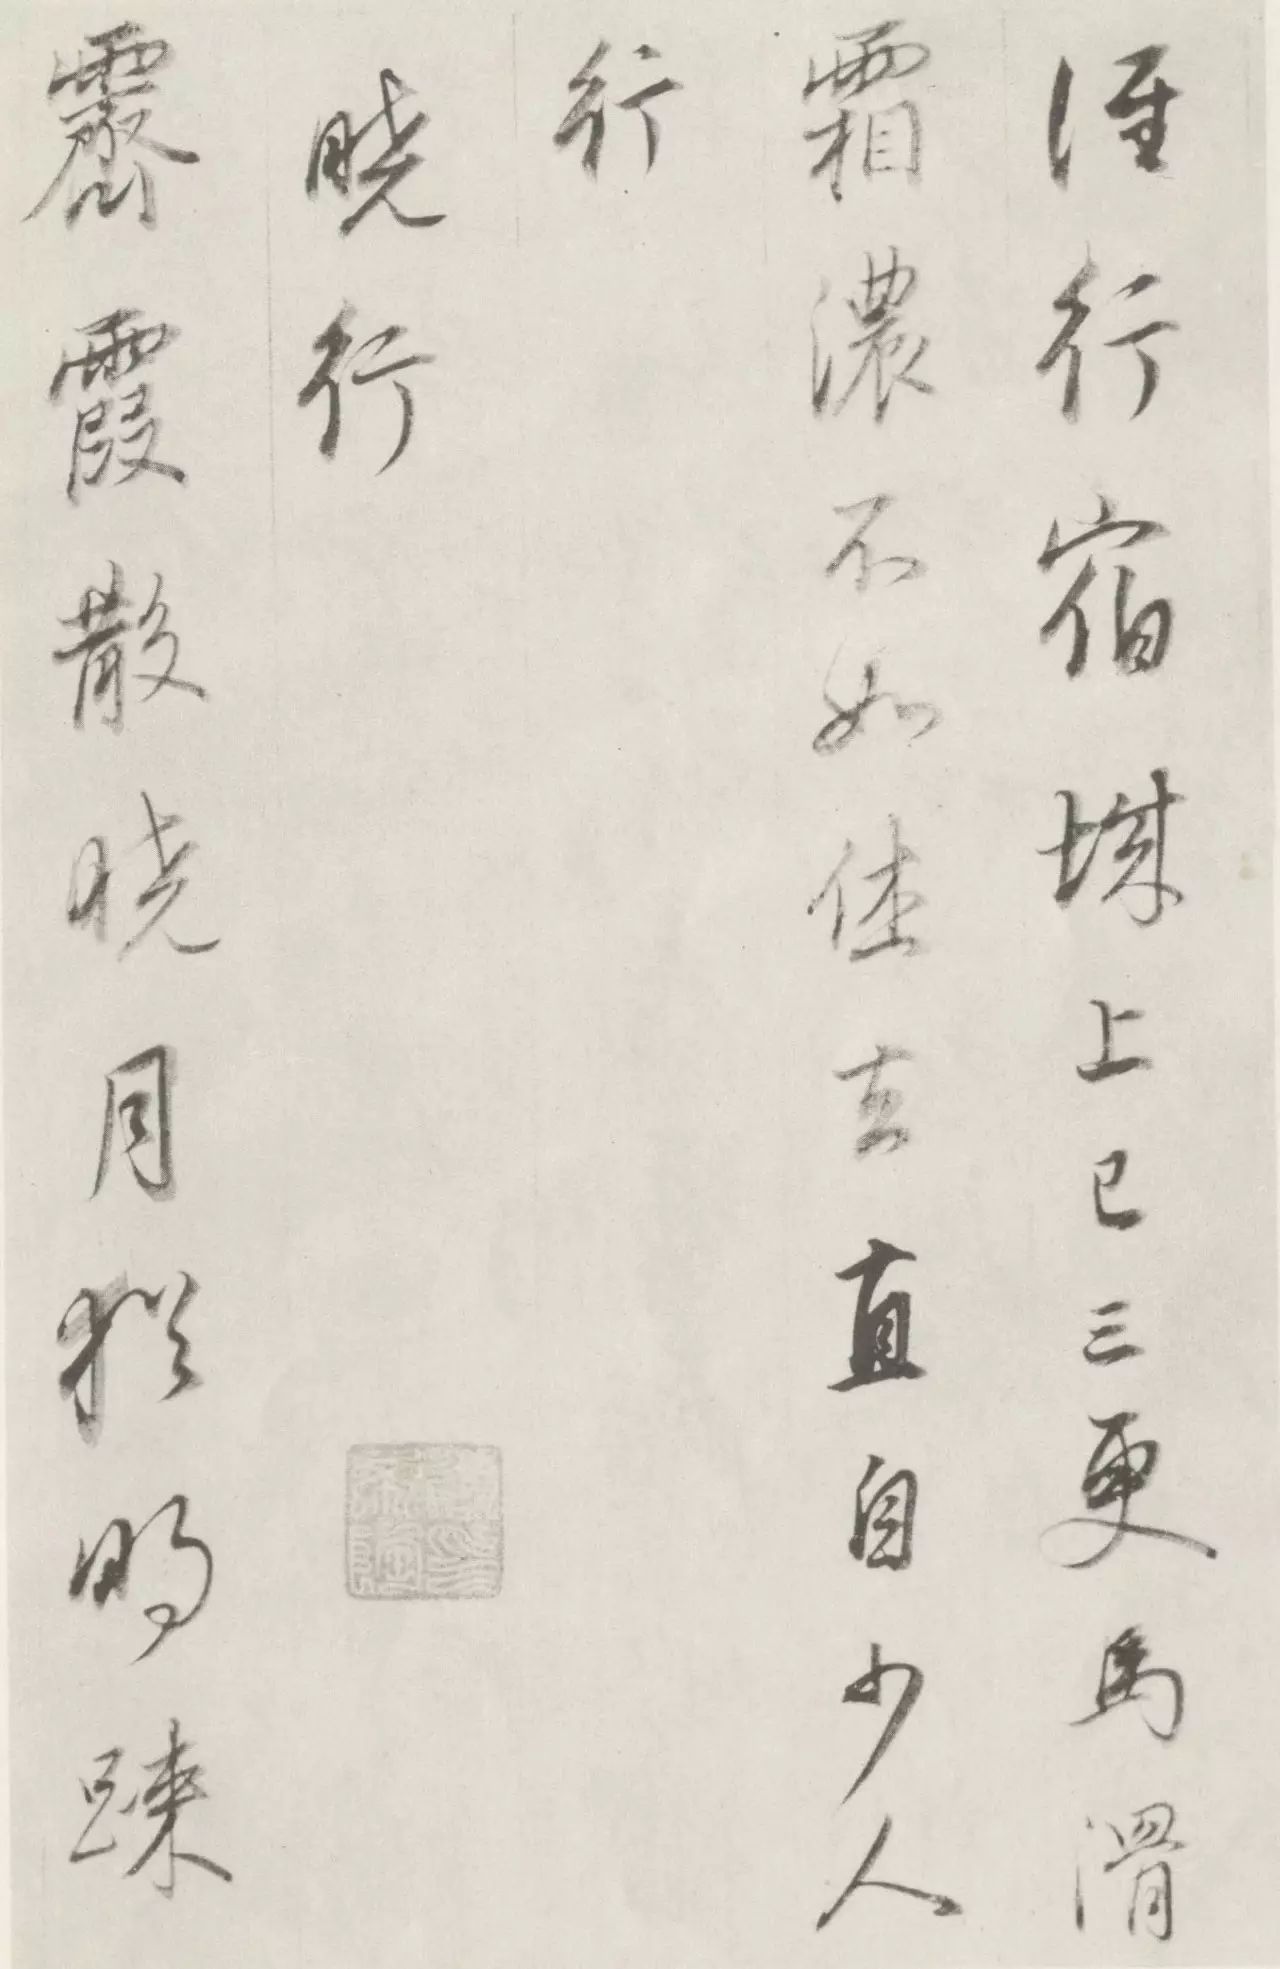 誰行宿城上已三更馬滑
霜濃不如休去直自少人
行
曉行
霽霞散曉月猶明疎